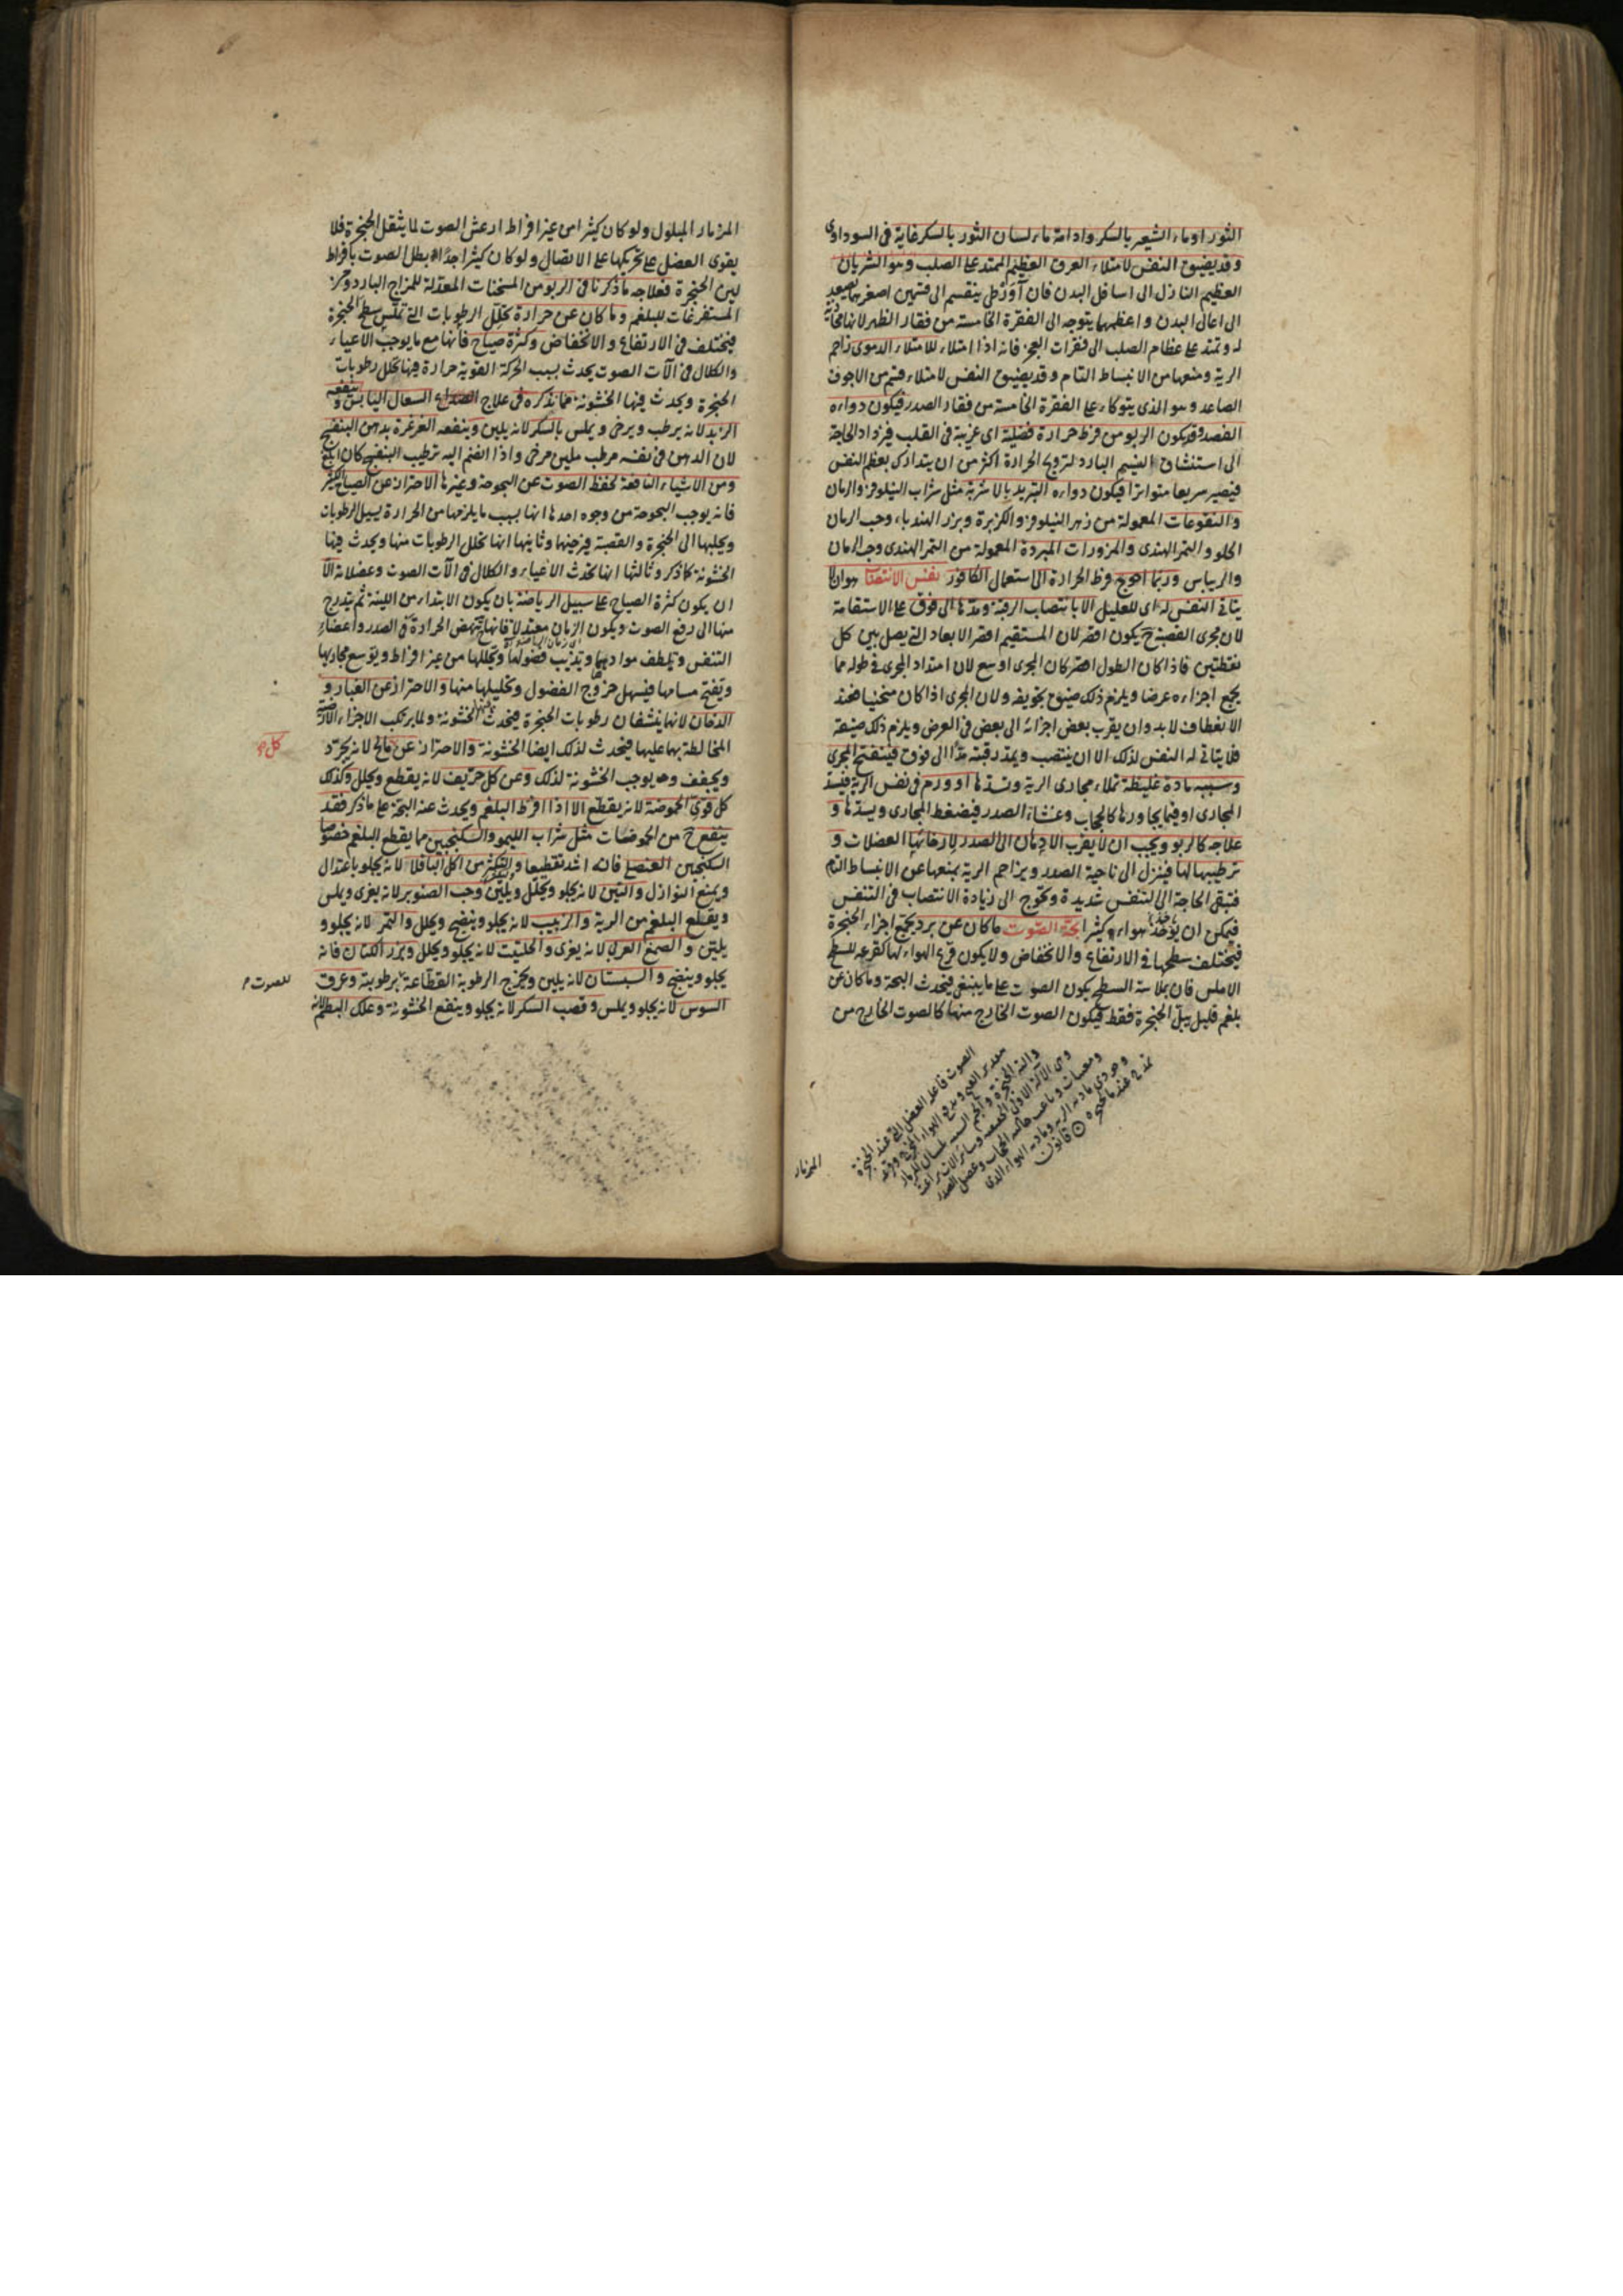 الثور او ماء الشعير بالسكر وادامة ماء لسان الثور بالسكر غاية في السوداوى
وقد يضيق النفس لامتلاء العرق العظيم الممتد على الصلب وهو الشريان
العظيم النازل الى اسافل البدن فان آوَرْطى ينقسم الى قسمين اصغرهما يصعد
الى اعالى البدن و اعظمهما يتوجه الى الفقرة الخامسة من فقار الظهر لانها محاذية
له وتمتد على عظام الصلب الى فقرات العجز فانه اذا امتلاء للامتلاء الدموى زاحم
الرية ومنعها من الانبساط التام وقد يضيق النفس لامتلاء قسم من الاجوف
الصاعد وهو الذى يتوكاء على الفقرة الخامسة من فقار الصدر فيكون دواءه
الفصد وقد يكون الربو من فرط حرارة فضلية اى غريبة فى القلب فيزداد الحاجة
الى استنشاق النسيم البارد لترويح الحرارة اكثر من ان يتدارك بعظم النفس
فيصير سريعا متواترا فيكون دواءه التبريد بالاشربة مثل شراب النيلوفر والرمان
والنقوعات المعمولة من زهر النيلوفر والكزبرة وبزر الهندباء وحب الرمان
الحلو والتمر الهندى والمزورات المبردة المعمولة من التمر الهندى وحب الرمان
والريباس وربما احوج فرط الحرارة الى استعمال الكافور نفس الانتصاب هو ان لا
يتاتى النفس له اى للعليل الا بانتصاب الرقبة ومدّها الى فوق على الاستقامة
لان مجرى القصبة ح يكون اقصر لان المستقيم اقصر الابعاد التى يصل بين كل
نقطتين فاذا كان الطول اقصر كان المجرى اوسع لان امتداد المجرى فى طوله مما
يجمع اجزاءه عرضا ويلزم ذلك ضيق تجويفه ولان المجرى اذا كان منحنيا فعند
الانعطاف لا بد وان يقرب بعض اجزائه الى بعض فى العرض ويلزم ذلك ضيقه
فلا يتاتى له النفس لذلك الا ان ينتصب ويمد رقبته مدًّا الى فوق فينفتح المجرى
وسببه مادة غليظة تملاء مجارى الرية وتسدّها او ورم فى نفس الرية فيسد
المجارى او فيما يجاورها كالحجاب وغشاء الصدر فيضغط المجارى ويسدّها و
علاجه كالربو ويجب ان لا يقرب الادهان الى الصدر لارخائها العضلات و
ترطيبها لها فينزل الى ناحية الصدر ويزاحم الرية بمنعها عن الانبساط التام
فتبقى الحاجة الى التنفس شديدة وتحوج الى زيادة الانتصاب فى التنفس
فيمكن ان يؤخذ هواء كثيرا بحة الصوت ما كان عن برد يجمع اجزاء الحنجرة
فيختلف سطحها فى الارتفاع والانخفاض ولا يكون قرع الهواء لها كقرعه للسطح
الاملس فان بملاسة السطح يكون الصوت على ما ينبغى فيحدث البحة وما كان عن
بلغم قليل يبلّ الحنجرة فقط فيكون الصوت الخارج منها كالصوت الخارج من
الصوت فاعله العضل التى عند الحنجرة
قانون
المزمار
المزمار المبلول ولو كان كثيرا من غير افراط ارعش الصوت لما يثقل الحنجرة فلا
يقوى العضل على تحريكها على الاتصال ولو كان كثيرا جدًّا بطل الصوت بافراط
لين الحنجرة فعلاجه ما ذكرنا فى الربو من المسخنات المعدّلة للمزاج البارد ومن
المستفرغات للبلغم وما كان عن حرارة تحلّل الرطوبات التى تملّس سطح الحنجرة
فيختلف فى الارتفاع والانخفاض وكثرة صياح فانها مع ما يوجب الاعياء
والكلال فى آلات الصوت يحدث بسبب الحركة القوية حرارة فيها تحلل رطوبات
الحنجرة ويحدث فيها الخشونة مما نذكره فى علاج السعال اليابس وينفعه
الزبد لانه يرطب ويرخى ويملس بالسكر لانه يلين وينفعه الغرغرة بدهن البنفسج
لان الدهن فى نفسه مرطب ملين مرخى واذا انضم اليه ترطيب البنفسج كان ابلغ
ومن الاشياء النافعة لحفظ الصوت عن البحوحة وغيرها الاحتراز عن الصياح الكثير
فانه يوجب البحوحة من وجوه احدها انها بسبب ما يلزمها من الحرارة يسيل الرطوبات
ويجلبها الى الحنجرة والقصبة فيرخيها وثانيها انها تحلل الرطوبات منها ويحدث فيها
الخشونة كما ذكر وثالثها انها تحدث الاعياء والكلال فى آلات الصوت وعضلاته الّا
ان يكون كثرة الصياح على سبيل الرياضة بان يكون الابتداء من اللينة ثم يتدرج
منها الى رفع الصوت ويكون الزمان معتدلا فانها تنهض الحرارة فى الصدر واعضاء
التنفس ويلطف موادها وتذيب فضولها وتحللها من غير افراط ويوسع مجاريها
ويفتح مسامها فيسهل خروج الفضول وتحليلها منها والاحتراز عن الغبار و
الدخان لانهما ينشفان رطوبات الحنجرة فيحدث فيها الخشونة ولما يركب الاجزاء الارضية
المخالطة بهما عليها فيحدث لذلك ايضا الخشونة والاحتراز عن مالح لانه يجرّد
كل
ويجفف وهو يوجب الخشونة لذلك وعن كل حرّيف لانه يقطع ويحلل وكذلك
كل قوى الحموضة لانه يقطّع الا اذا افرط البلغم ويحدث عنه البحّة على ما ذكر فقد
ينفع ح من الحموضات مثل شراب الليمو والسكنجبين مما يقطع البلغم خصوصا
السكنجبين العنصلى فانه اشد تقطيعا وليكثر من اكل الباقلا لانه يجلو باعتدال
ويمنع النوازل والتين لانه يجلو ويحلّل ويليّن وحب الصنوبر لانه يغرى ويملس
ويقطع البلغم من الرية والزبيب لانه يجلو وينضج ويحلل والتمر لانه يجلو و
يليّن والصمغ العربى لانه يغرى والحلتيت لانه يجلو ويحلل وبزر الكتان فانه
يجلو وينضج والسبستان لانه يلين ويخرج الرطوبة القطّاعة للصوت برطوبته وعرق
السوس لانه يجلو ويملس وقصب السكر لانه يجلو وينفع الخشونة وعلك البطم لانه